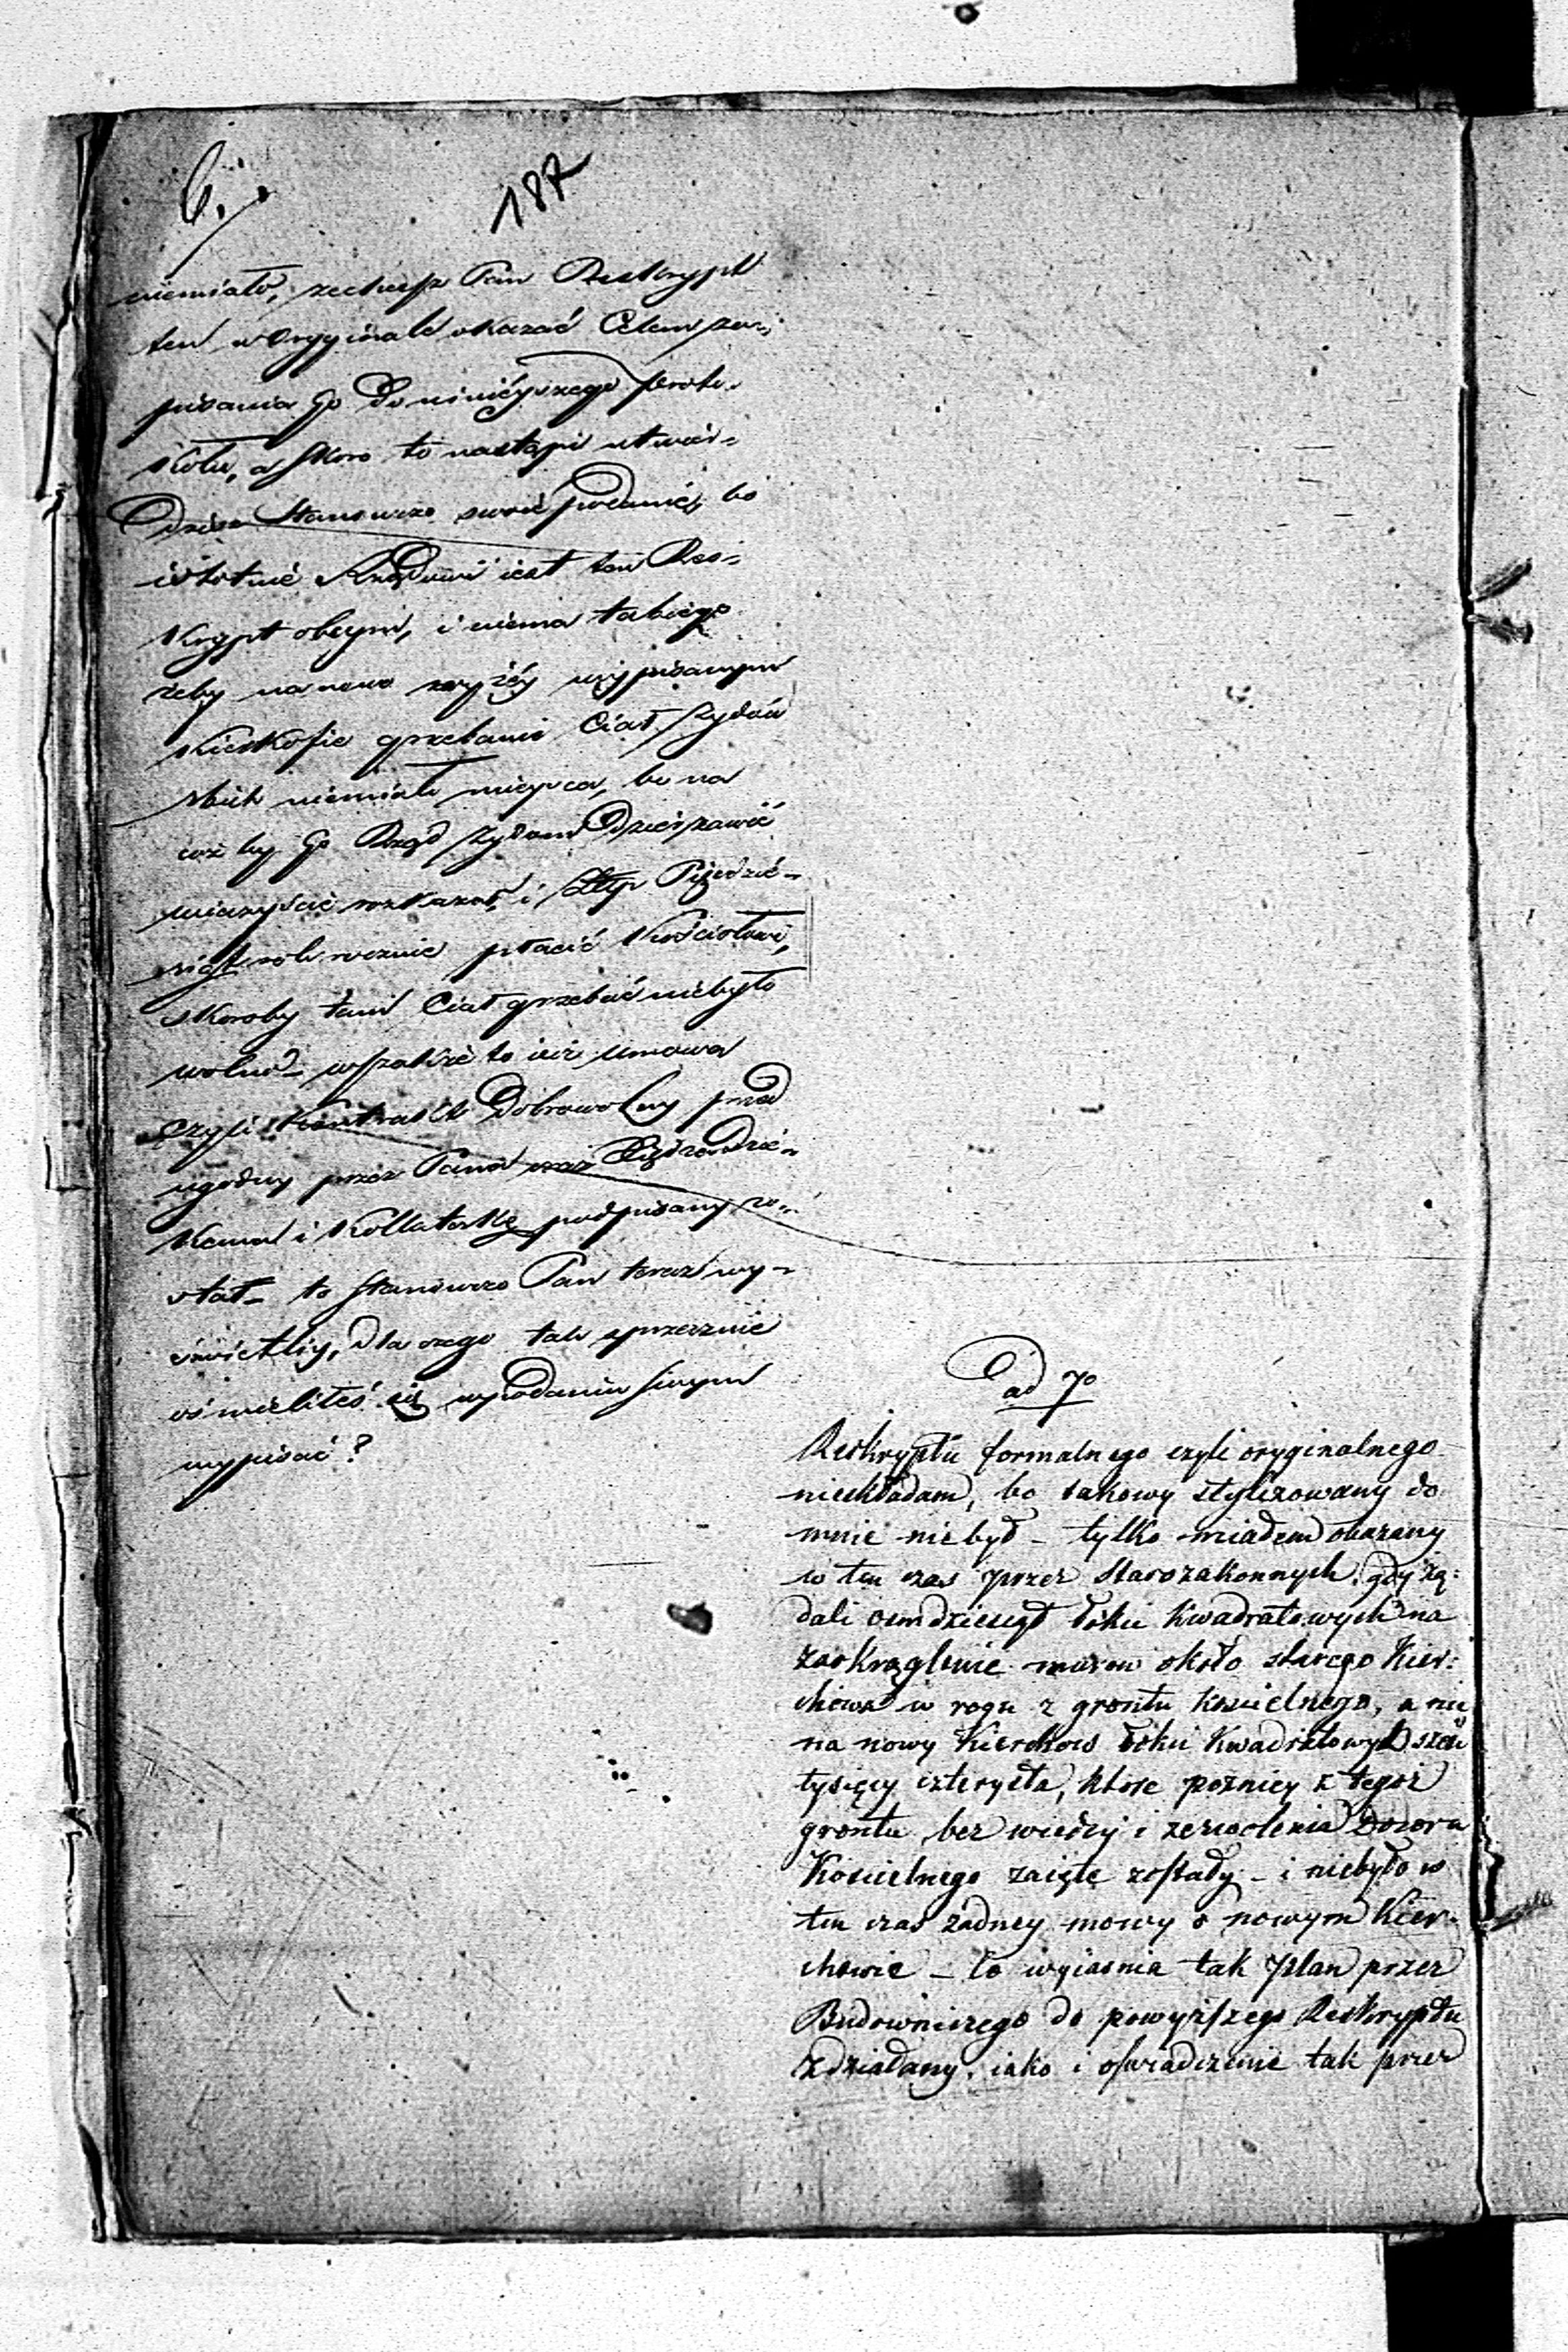 6.
187
niemiało, zechcesz Pan Reskrypt
ten w Oryginale okazać Celem za„
pisania Go do ninieyszego Proto„
kółu, a skoro to nastąpi utwier„
dzisz stanowczo swoie podanie, bo
istotnie Rządowi iest ten Res„
krypt obcym, i niema takiego
żeby na nowo wyżéy wypisanym
Kierkofie grzebanie Ciał Żydow
skich niemiało mieysca, bo na
coż by Go Rząd Żydom Dzierżawić
wieczyście rozkazał, i Złtp Pięćdzie„
siąt rok rocznie płacić Kościołowi,
skoroby tam Ciał grzebać niebyło
wolno_ wszakże to iest umowa
czyli Kontrakt Dobrowolny przed
ugodny przez Pana oraz Dziekana
i Kollatorkę podpisany zo„
stał_ to stanowczo Pan teraz wy„
świetliy, dla czego tak sprzecznie
ośmieliłeś się w podaniu swym
wypisać?
ad 7o
Reskryptu formalnego czyli oryginalnego
nieskładam, bo takowy stylizowany do
mnie niebył – tylko miałem okazany
w ten czas przez Starozakonnych, gdy żą:
dali ośmdziesiąt łokci Kwadratowych na
zaokrąglenie muru około starego Kier:
chowa w rogu z grontu koscielnego, a nie
na nowy Kierchow łokci Kwadratowych sześć
tysięcy czterysta, ktore pozniey z tegoż
grontu bez wiedzy i zezwolenia Dozoru
Koscielnego zaięte zostały – i niebyło w
ten czas żadney mowy o nowym Kier:
chowie – to wyiasnia tak plan przez
Budowniczego do powyższego Reskryptu
zdziałany, iako i oświadczenie tak przez